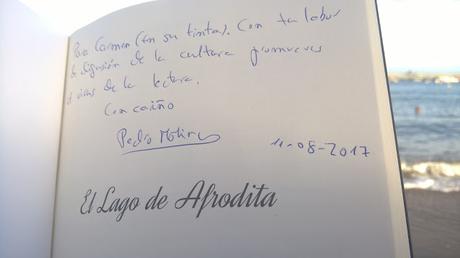 Para Carmen (En su tinta). Con tu labor
de difusión de la cultura promueves
de la lectura.
Con cariño
Pedro Molina
11-08-2017
El Lago de Afrodita